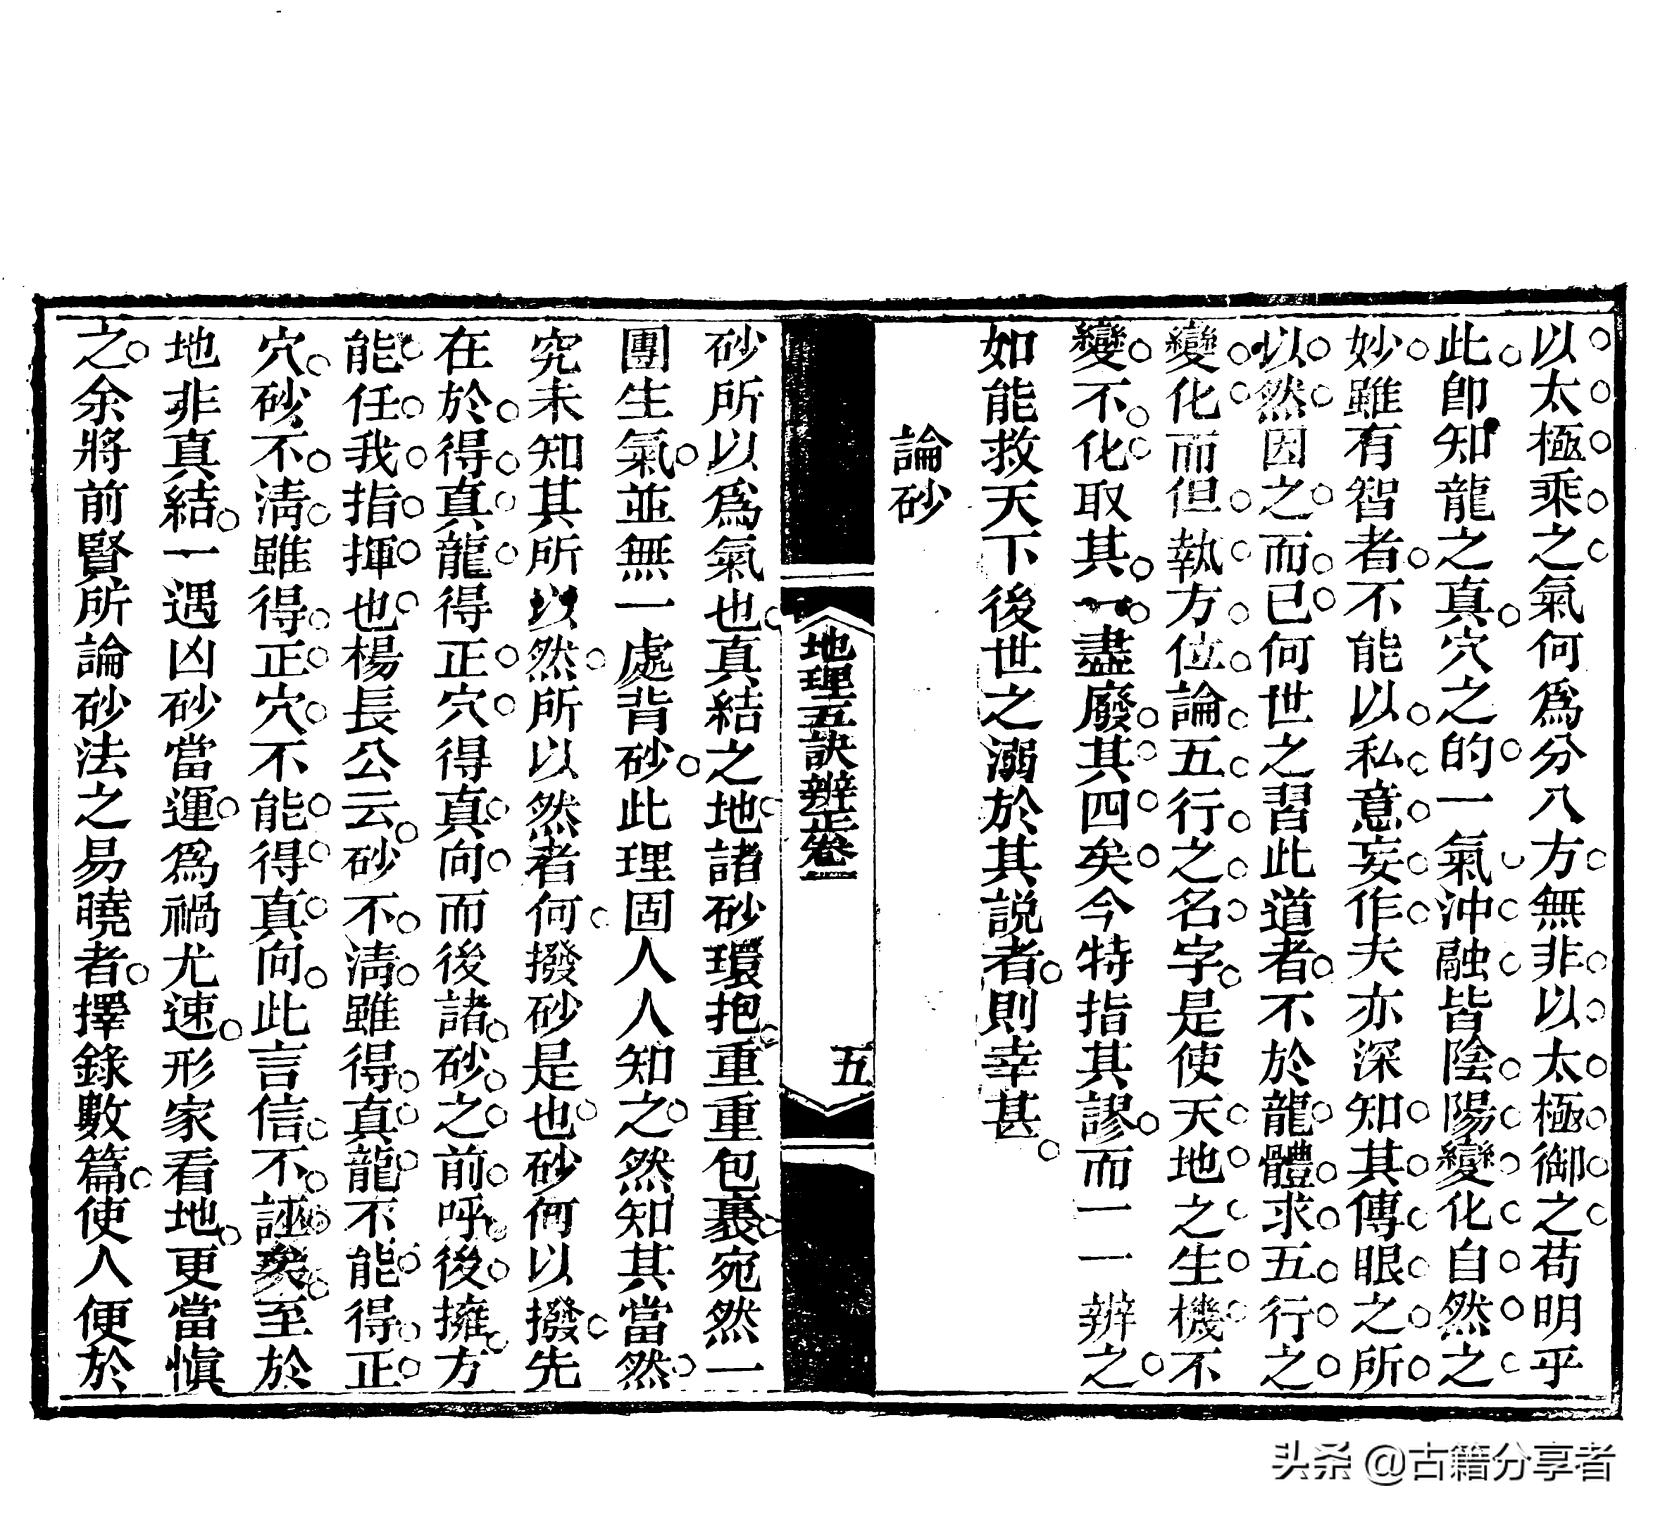 以太極乘之氣何爲分八方無非以太極御之苟明乎
此卽知龍之真穴之的一氣沖融皆陰陽變化自然之
妙雖有智者不能以私意妄作夫亦深知其傳眼之所
以然因之而已何世之習此道者不於龍體求五行之
變化而但執方位論五行之名字是使天地之生機不
變不化取其一盡廢其四矣今特指其謬而一一辨之
如能救天下後世之溺於其説者則幸甚
論砂
地理五訣辨正卷一
五
砂所以爲氣也真結之地諸砂環抱重重包裹宛然一
團生氣並無一處背砂此理固人人知之然知其當然
究未知其所以然所以然者何撥砂是也砂何以撥先
在於得真龍得正穴得真向而後諸砂之前呼後擁方
能任我指揮也楊長公云砂不淸雖得真龍不能得正
穴砂不淸雖得正穴不能得真向此言信不誣矣至於
地非真結一遇凶砂當運爲禍尤速形家看地更當愼
之余將前賢所論砂法之易曉者擇錄數篇使人便於
头条 @古籍分享者